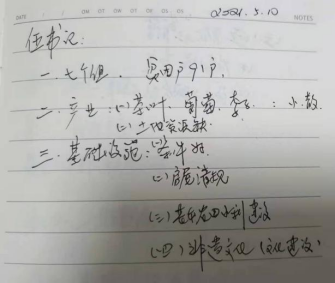 DATE
2021.5.10
NOTES
伍书记:
一. 七个组. 贫困户91户.
二. 产业:(1)茶叶、葡萄、李子:小、散
(二)土地资源缺
三. 基础设施:(一)条件好
(二)
(三)基本农田水利建设
(四)非遗文化(文化建设)